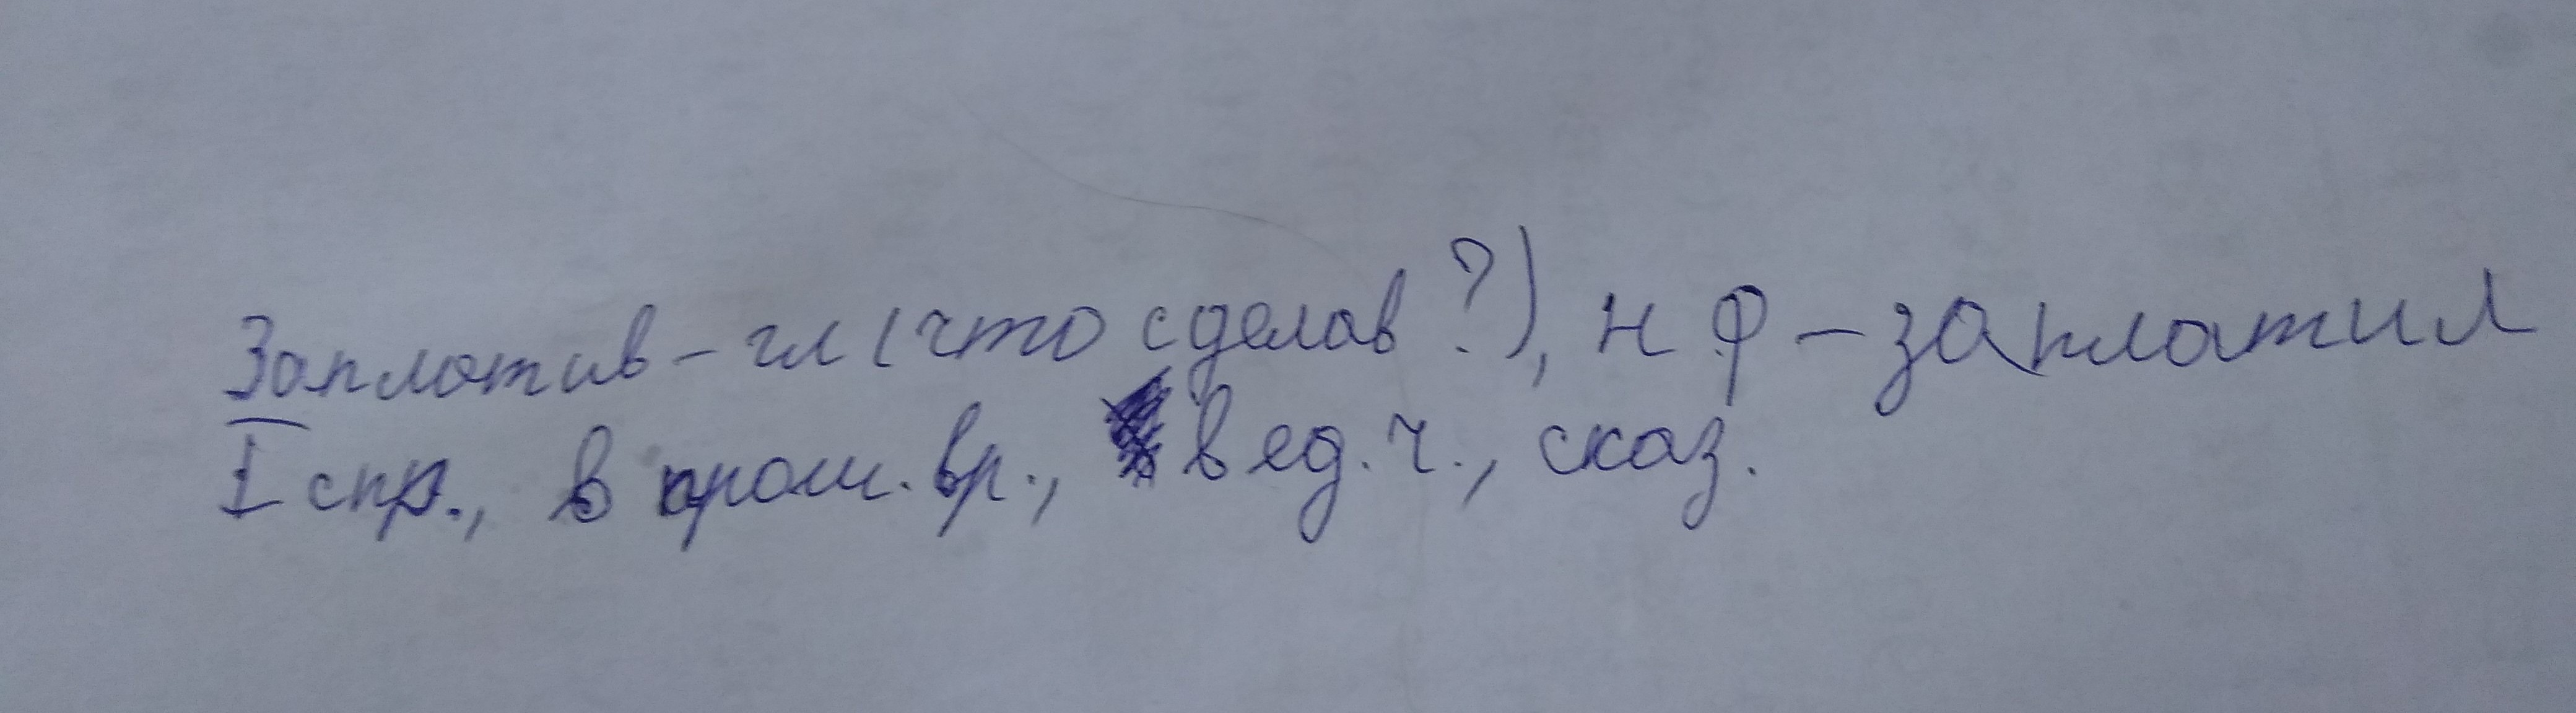 Заплатив – гл (что сделав?), н ф – заплатил
I спр., в прош. вр., в ед. ч., сказ.